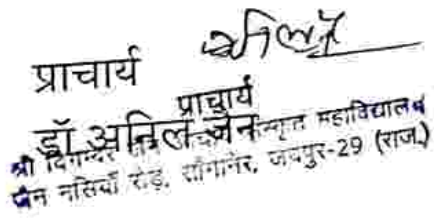 प्राचार्य
प्राचार्य
डॉ अनिल जैन
श्री दिगम्बर संस्कृत महाविद्यालय
जैन नसियाँ रोड़, साँगानेर, जयपुर-29 (राज.)